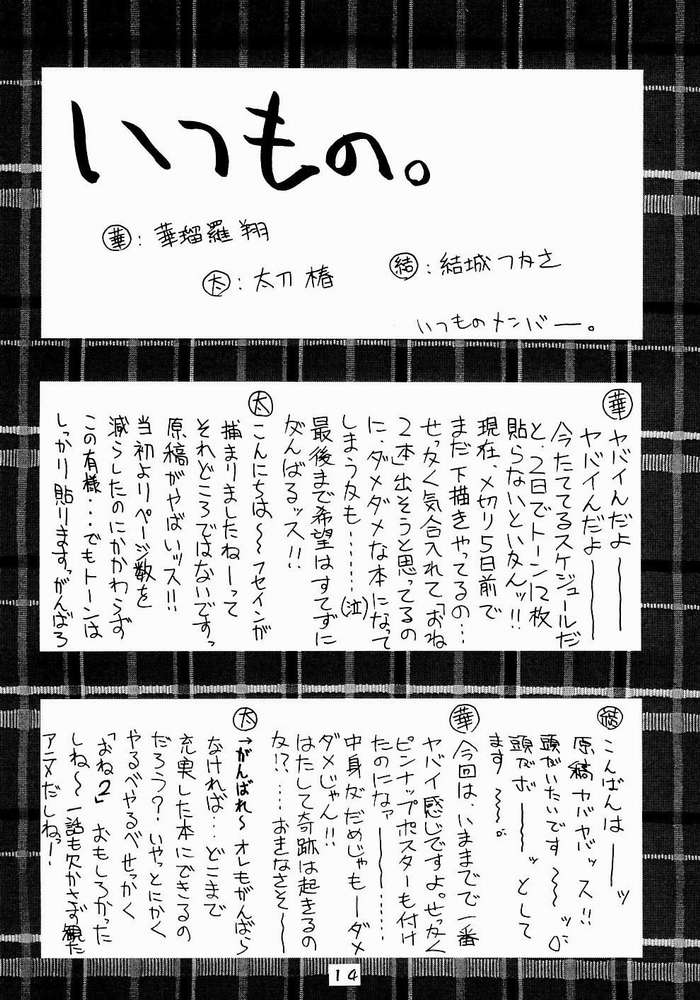 いつもの。
華：華瑠羅翔
太：太刀椿
結：結城つかさ
いつものメンバー。
華
ヤバイんだよ———
ヤバイんだよ———
今たててるスケジュールだ
と、2日でトーン12枚
貼らないといかんッ!!
現在、〆切り5日前で
まだ下描きやってるの…
せっかく気合入れて「おね
2本」出そうと思ってるの
に、ダメダメな本になって
しまうかも……(泣)
最後まで希望はすてずに
がんばるッス!!
太
こんにちは～～フセインが
捕まりましたねーって
それどころではないですっ
原稿がやばいッス!!
当初よりページ数を
減らしたのにかかわらず
この有様...でもトーンは
しっかり貼りますっがんばろ
結
こんばんは——ッ
原稿ヤバヤバッス!!
頭がいたいです～～ッ。
頭がボ——ッとして
ます～～。
華
今回は、いままでで一番
ヤバイ感じですよ。せっかく
ピンナップポスターも付け
たのになァ———……
中身がだめじゃもーダメ
ダメじゃん!!
はたして奇跡は起きるの
か!?…おきなさそ——
太
→がんばれ～オレもがんばら
なければ...どこまで
充実した本にできるの
だろう？いやっとにかく
やるべやるべせっかく
「おね2」おもしろかった
しね～一話も欠かさず観た
アニメだしねっー!
14